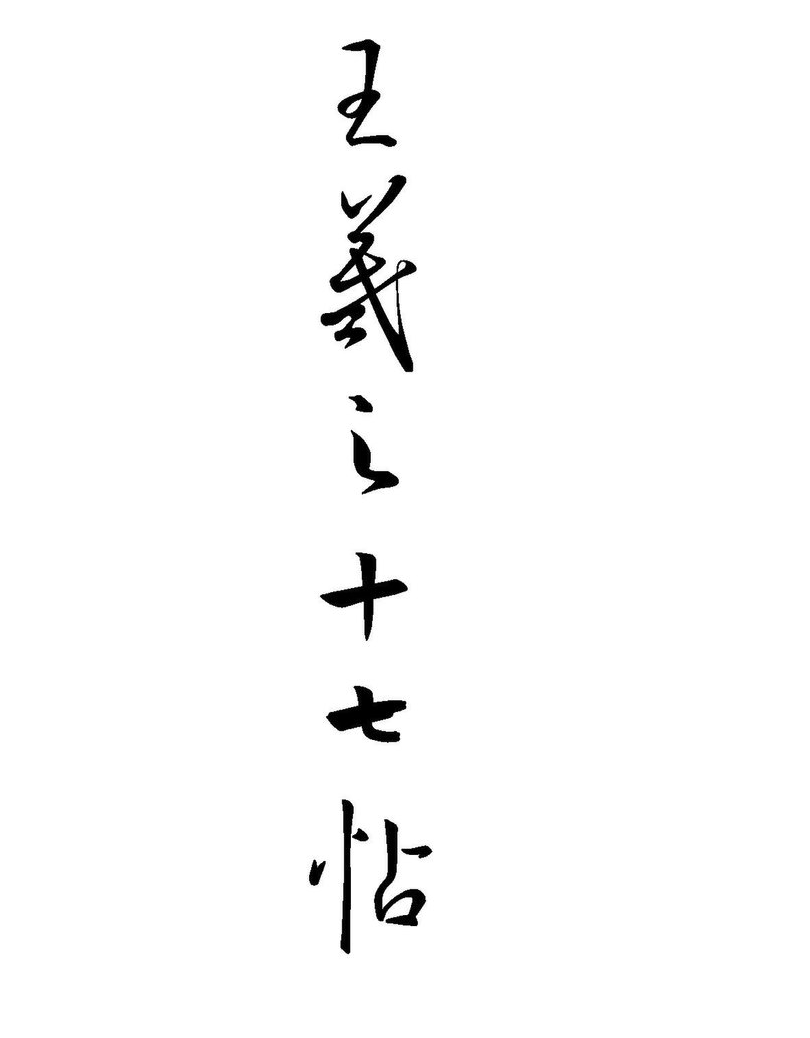 王羲之十七帖